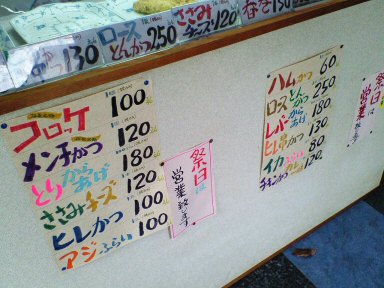 130
ロース
とんかつ 250
ささみ
チーズ 120
春巻 150
コロッケ 100
メンチかつ 120
とりからあげ 180
ささみチーズ 120
ヒレかつ 100
アジふらい 100
祭日は
営業致します
ハムかつ 60
ロースとんかつ 250
レバーからあげ 180
ヒレ串かつ 130
イカふらい 80
チキンかつ 120
祭日は
営業致します